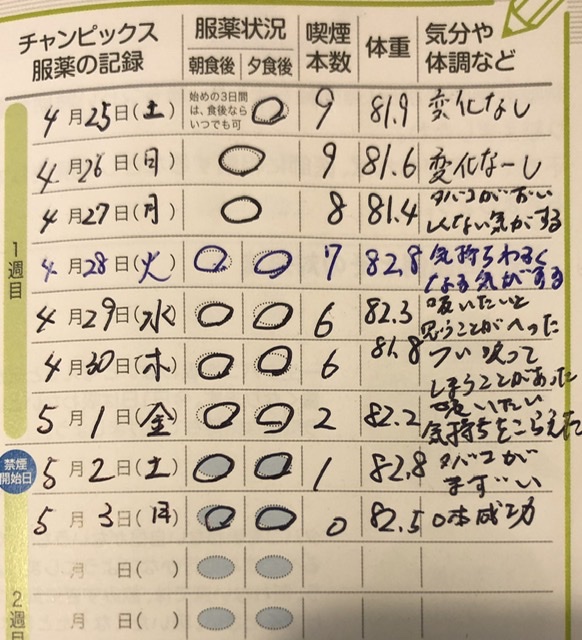 チャンピックス 服薬の記録 服薬状況 朝食後 夕食後 喫煙本数 体重 気分や体調など
1週目
4月25日(土) 始めの3日間は、食後ならいつでも可 9 81.9 変化なし
4月26日(日) 9 81.6 変化なーし
4月27日(月) 8 81.4 タバコがおいしくない気がする
4月28日(火) 7 82.8 気持ちわるくなる気がする
4月29日(水) 6 82.3 吸いたいと思うことがへった
4月30日(木) 6 81.8 つい吸ってしまうことがあった
5月1日(金) 2 82.2 吸いたい気持ちをこらえた
禁煙開始日
5月2日(土) 1 82.8 タバコがまずい
5月3日(日) 0 82.5 0本成功
2週目
月 日( )
月 日( )